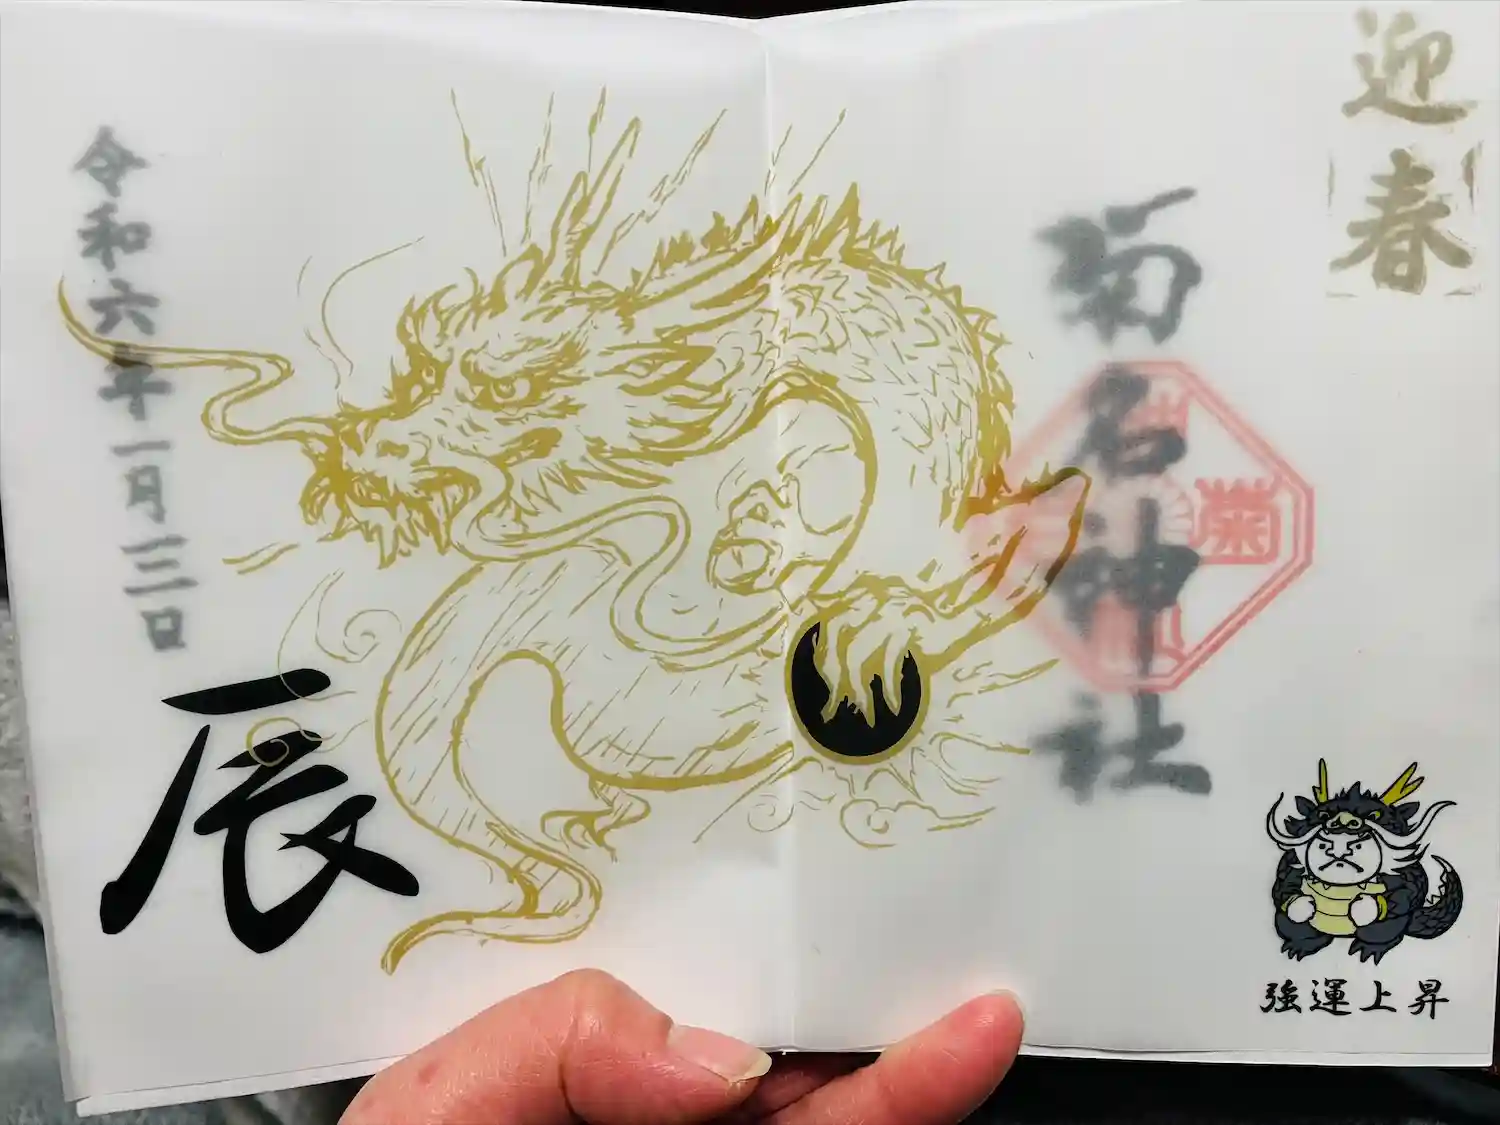 迎春
菊名神社
菊
令和六年一月三日
辰
強運上昇